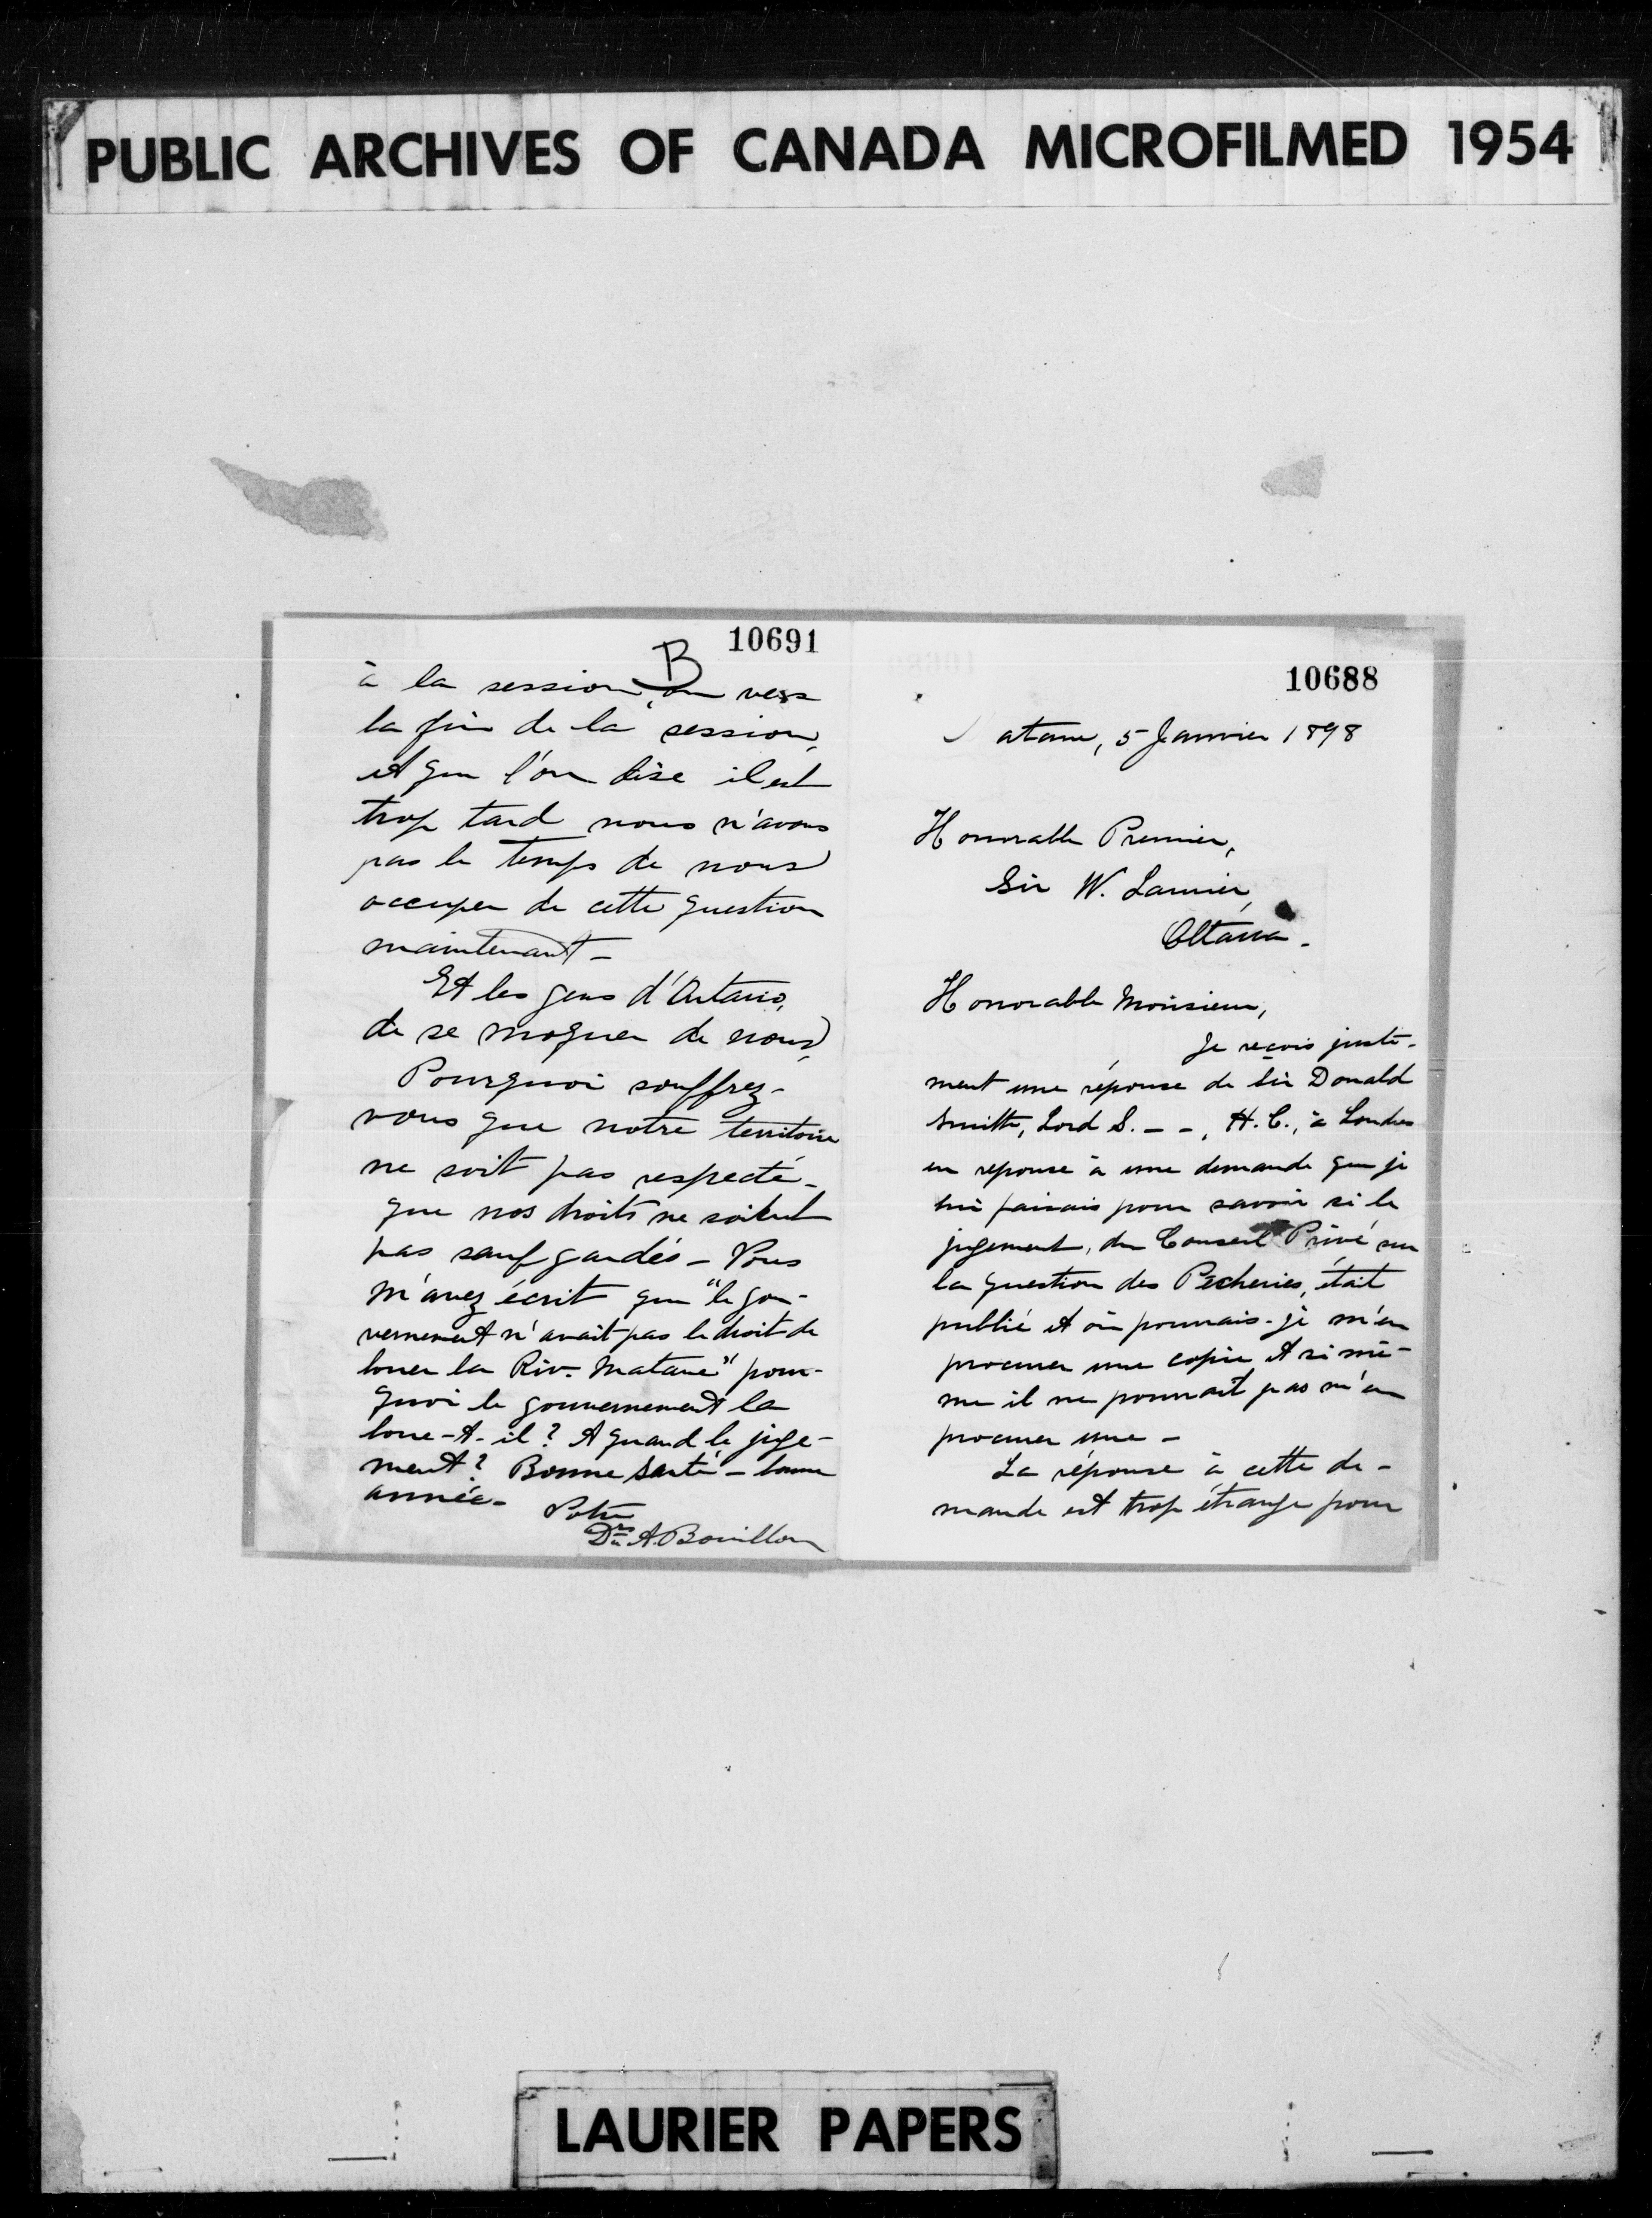 PUBLIC ARCHIVES OF CANADA MICROFILMED 1954
10691
B
à la session, ou vers
la fin de la session,
et que l'on dise il est
trop tard nous n'avons
pas le temps de nous
occuper de cette question
maintenant –
Et les gens d'Ontario,
de se moquer de nous,
Pourquoi souffrez-
vous que notre territoire
ne soit pas respecté –
que nos droits ne soient
pas saufgardés – Vous
m'avez écrit que "le gou-
vernement n'avait pas le droit de
louer la Riv. Matane" pour-
quoi le gouvernement la
loue-t-il? A quand le juge-
ment? Bonne santé – bonne
année –
Votre
A. Bouillon
10688
atane, 5 Janvier 1898
Honorable Premier,
Sir W. Laurier,
Ottawa –
Honorable Monsieur,
Je reçois juste-
ment une réponse de Sir Donald
Smith, Lord S. – –, H. C., à Londres
en reponse à une demande que je
lui faisais pour savoir si le
jugement, du Conseil Privé sur
la question des Pêcheries, était
publié et où pourrais-je m'en
procurer une copie, et si mê-
me il ne pourrait pas m'en
procurer une –
La réponse à cette de-
mande est trop étrange pour
LAURIER PAPERS